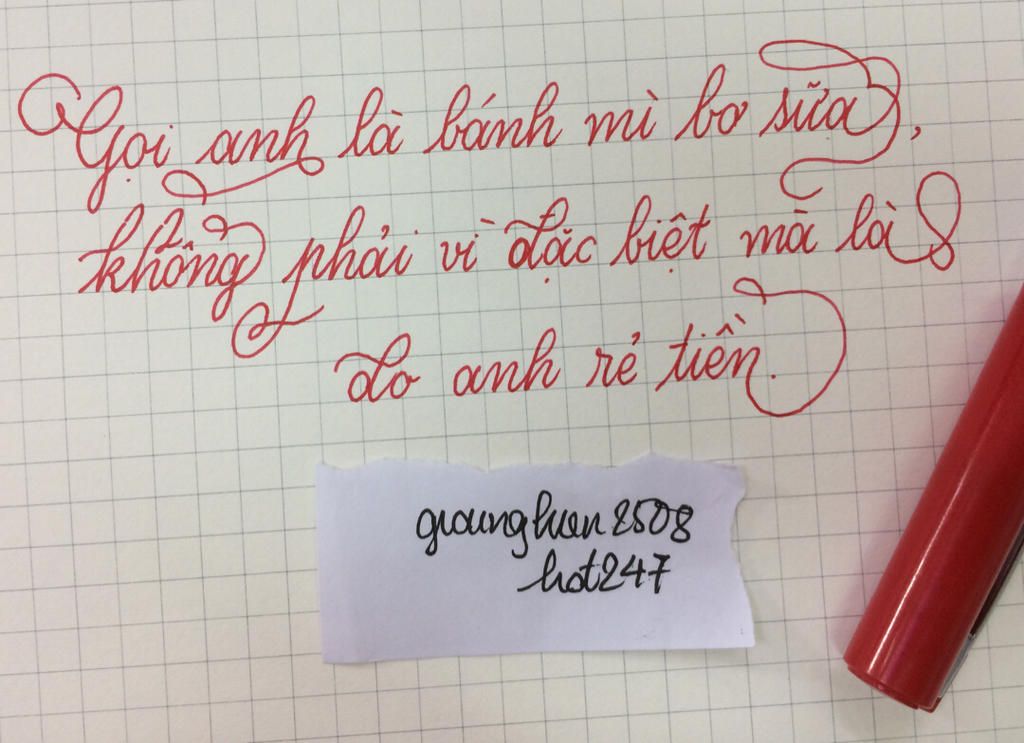 Gọi anh là bánh mì bơ sữa,
không phải vì đặc biệt mà là
do anh rẻ tiền.
hot247